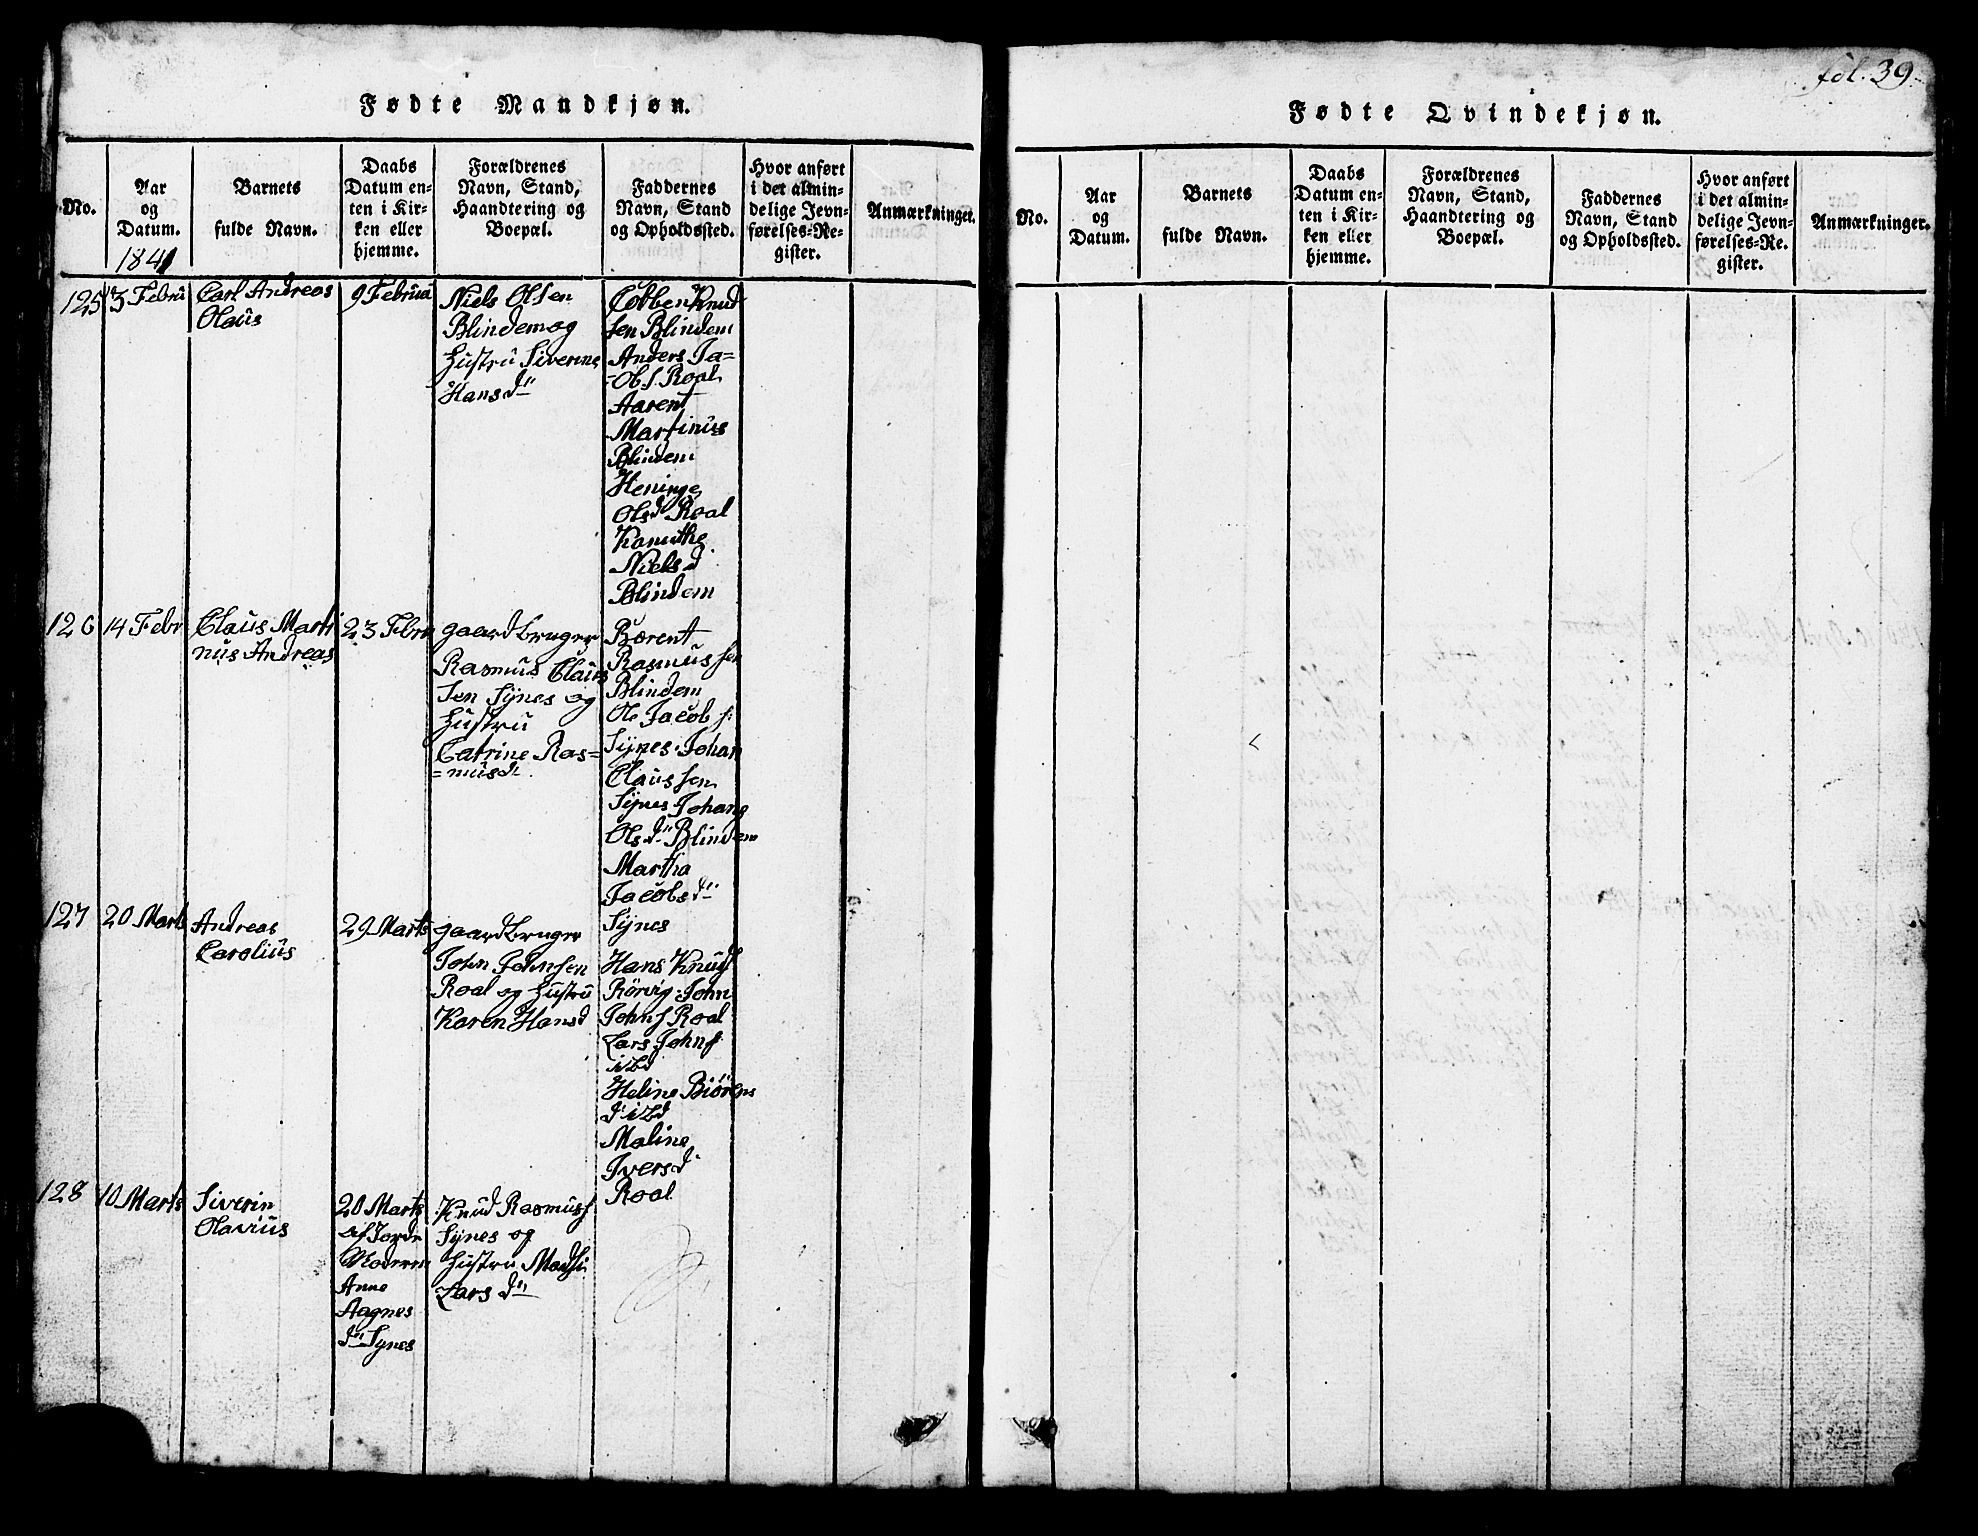 Fødte Mandkjøn.
No.
Aar
og
Datum.
1841
Barnets
fulde Navn.
Daabs
Datum en-
ten i Kir-
ken eller
hjemme.
Forældrenes
Navn, Stand,
Haandtering og
Boepæl.
Faddernes
Navn, Stand
og Opholdssted.
Hvor anført
i det almin-
delige Jevn-
førelses-Re-
gister.
Anmærkninger.
125
3 Febru
Carl Andreas
Olaüs
9 Februa
Niels Olsen
Blindem og
Hustru Siverine
Hansd
Knud
sen Blindem
Anders Ja=
=Obs Roal
Aarent
Martinus
Blindem
Heninge
Olsd Roal
Niels d
Blindem
126
14 Febr
Claus Marti
nus Andreas
23 Febru
gaardbruger
Rasmus Claus
sen Synes og
Hustru
Catrine Ras=
=musd
Bærent
Rasmus sen
Blindem
Ole Jacob s:
Synes. Johan
Claus sen
Synes Johane
Olsd Blindem
Martha
Jacobsd
Synes
127
20 Marts
Andreas
Carolius
29 Marts
gaardbruger
John Johnsen
Roal og Hustru
Karen Hansd
Hans Knuds
Rörvig. John
Johns Roal
Lars Johns
ibd
Heline Biörns
d ibd
Maline
Iversd
Roal
128
10 Marts
Siverin
Olavius
20 Marts
af Jorde
Moderen
Anne
Aagnes
d Synes
Knud Rasmuss
Synes og
Hustru
Lars d
fol. 39.
Fødte Qvindekjøn.
No.
Aar
og
Datum.
Barnets
fulde Navn.
Daabs
Datum en-
ten i Kir-
ken eller
hjemme.
Forældrenes
Navn, Stand,
Haandtering og
Boepæl.
Faddernes
Navn, Stand
og Opholdssted.
Hvor anført
i det almin-
delige Jevn-
førelses-Re-
gister.
Anmærkninger.